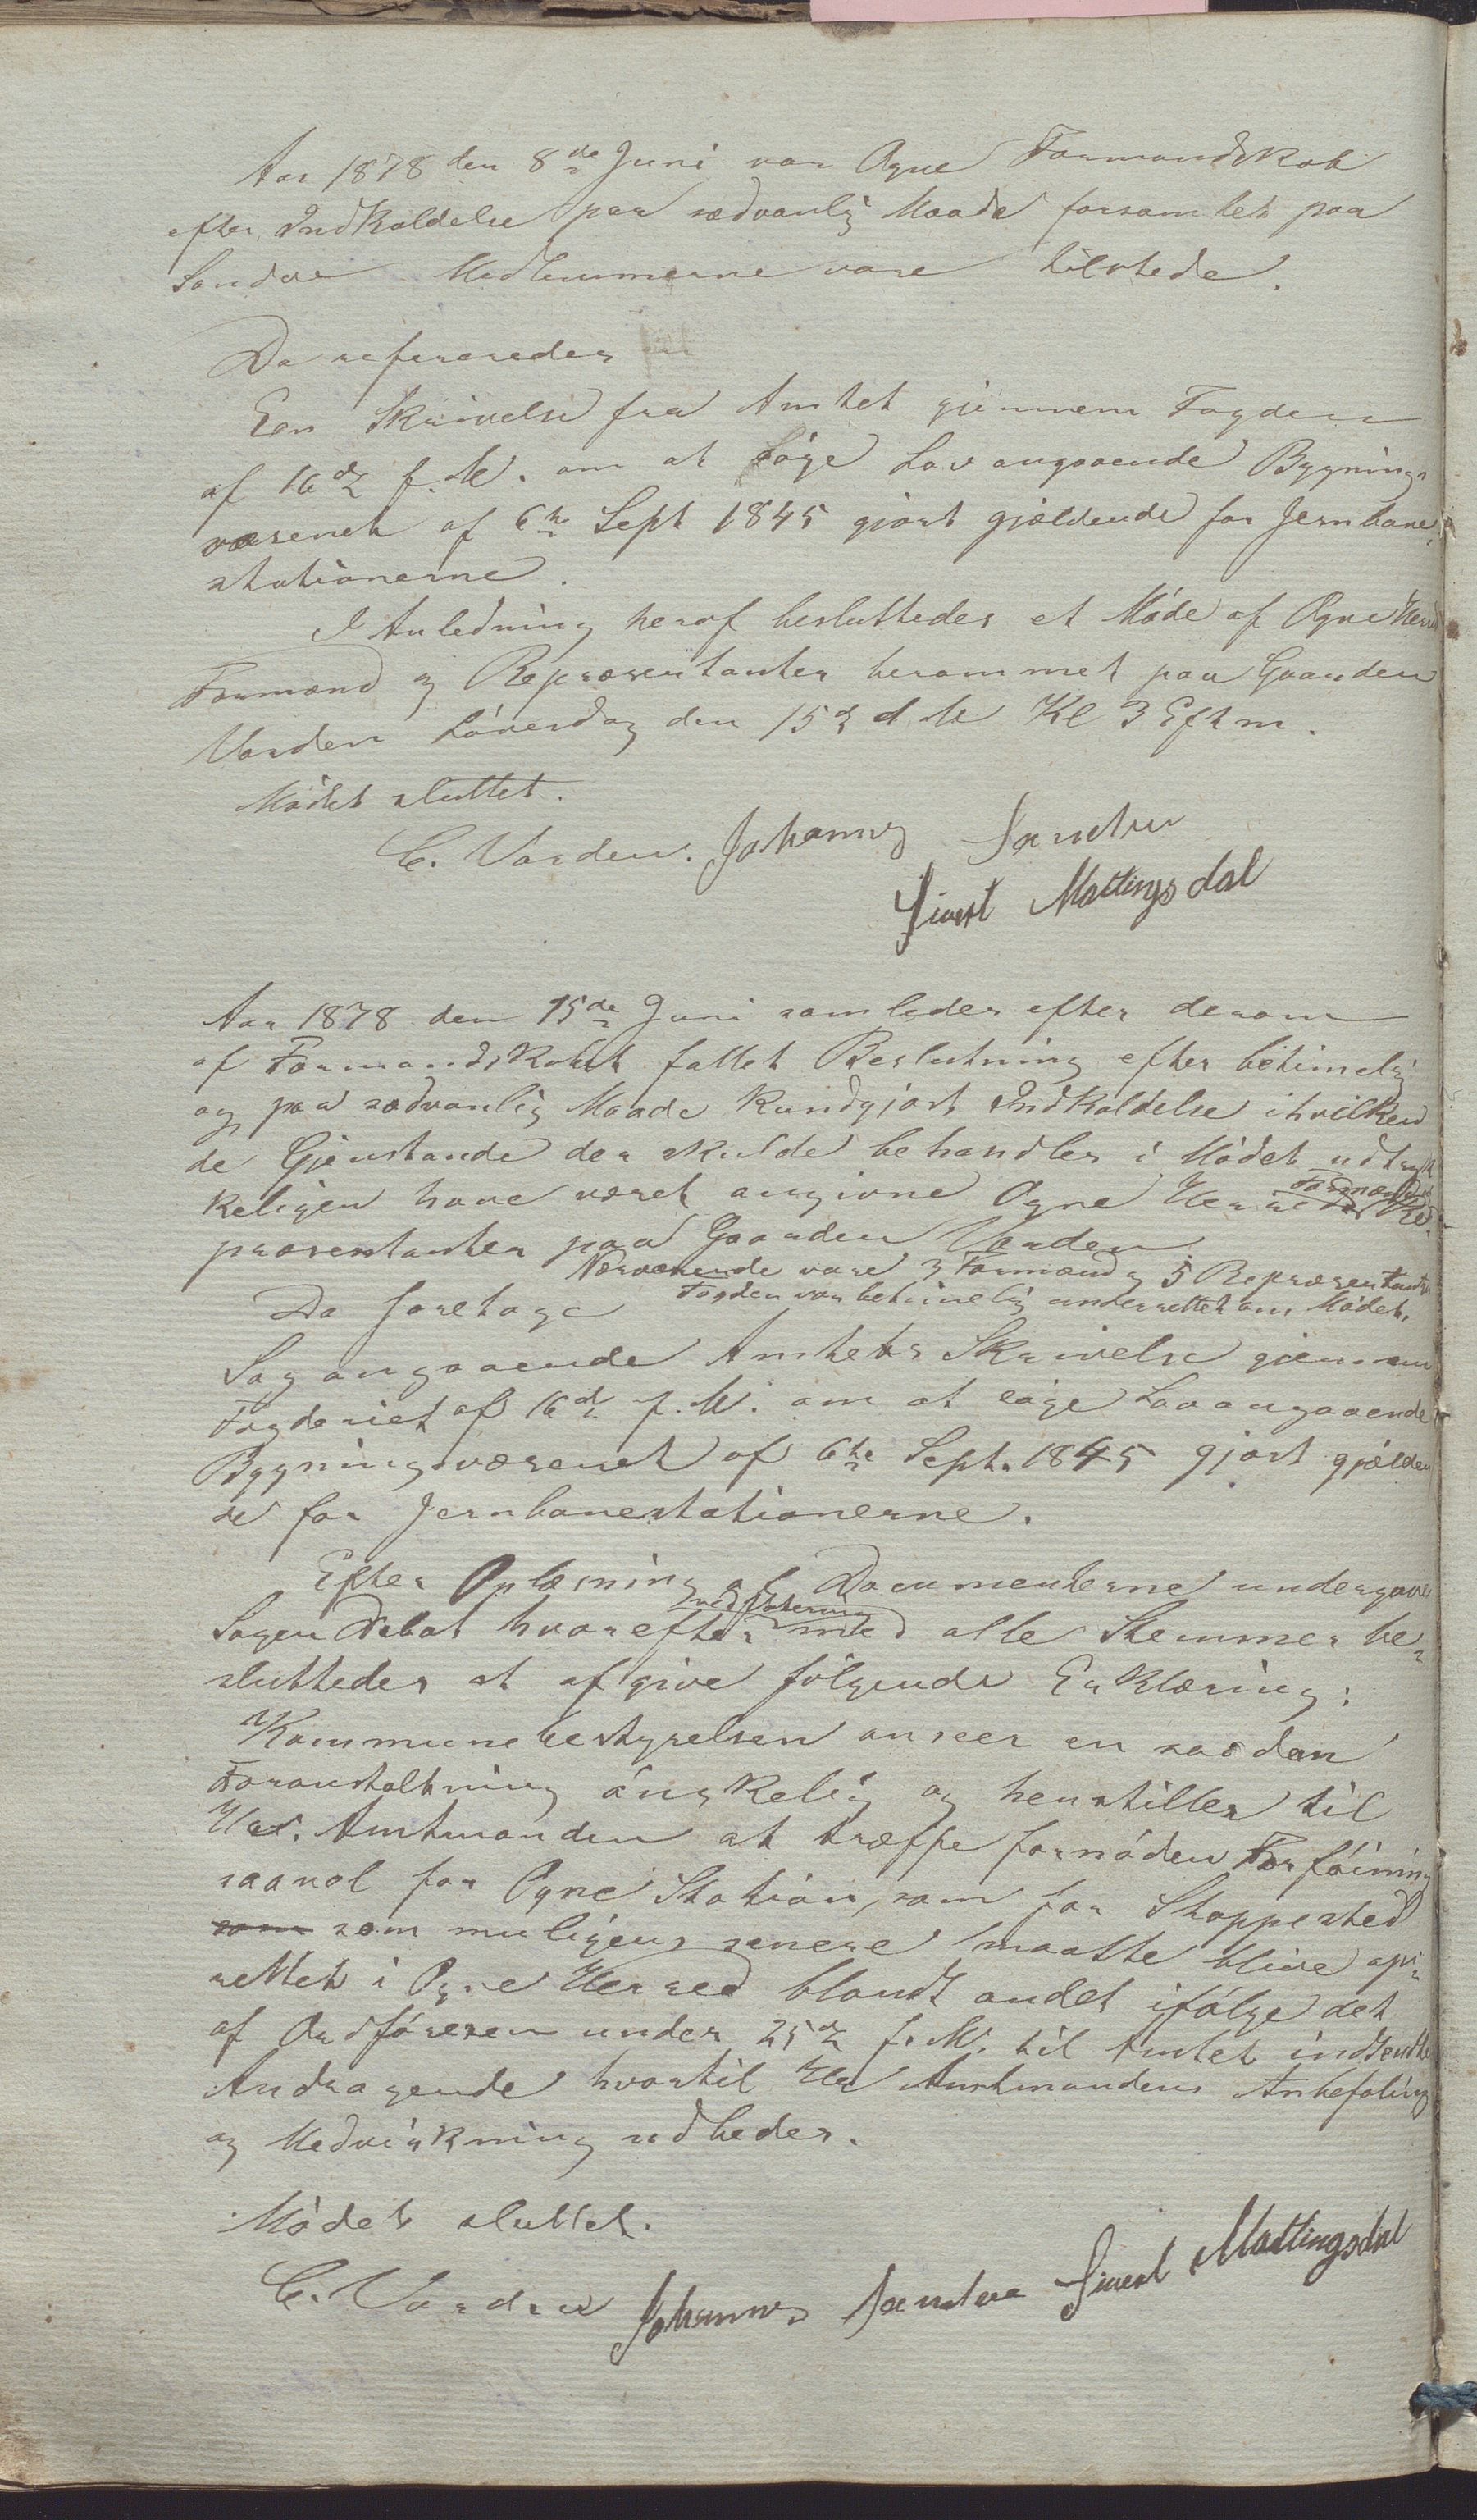 Aar 1878 den 8de Juni var Ogne Formandskab
efter Indkaldelse paa sædvanlig Maade forsamlet paa
Sandve Medlemmerne vare tilstede.
Da refereredes
En Skrivelse fra Amtet gjennem Fogden
af 16de f. M. om at søge Lov angaaende Bygnings-
væsenet af 6te Sept 1845 gjort gjældende for Jernbane-
stationerne.
I Anledning heraf besluttedes et Møde af Ogne Herred
Formænd og Repræsentanter berammet paa Gaarden
Varden Løverdag den 15de d. M Kl 3 Eftm.
Mødet sluttet.
C. Varden. Johannes Sandve
Sivert Mattingsdal
Aar 1878 den 15de Juni samledes efter derom
af Formandskabet fattet Beslutning efter betimelig
og paa sædvanlig Maade Kundgjort Indkaldelse i hvilken
de Gjenstande der skulde behandles i Mødet udtryk
keligen have været angivne Ogne Herreds Formænd og Re-
præsentanter paa Gaarden Varden
Nærværende vare 3 Formænd og 5 Repræsentanter
Fogden var betimelig underrettet om Mødet.
Da foretoges
Sag angaaende Amtets Skrivelse gjennem
Fogderiet af 16de f. M. om at søge Lov angaaende
Bygningsvæsenet af 6te Sept. 1845 gjort gjælden
de for Jernbanestationerne.
Efter Oplæsning af Documenterne undergave
Sagen Debat hvorefter ved Votering med alle Stemmer be-
sluttedes at afgive følgende Erklæring:
Kommunebestyrelsen anseer en saadan
Foranstaltning ønskelig og henstiller til
Hr. Amtmanden at træffe fornøden Forføining
saavel for Ogne Station, som for Stoppested
som som muligens senere maatte blive op-
rettet i Ogne Herred blandt andet ifølge det
af Ordføreren under 25de f. M. til Amtet indsendte
Andragende hvortil Hr Amtmandens Anbefaling
og Medvirkning udbedes.
Mødet sluttet.
C. Varden Johannes Sandve Sivert Mattingsdal